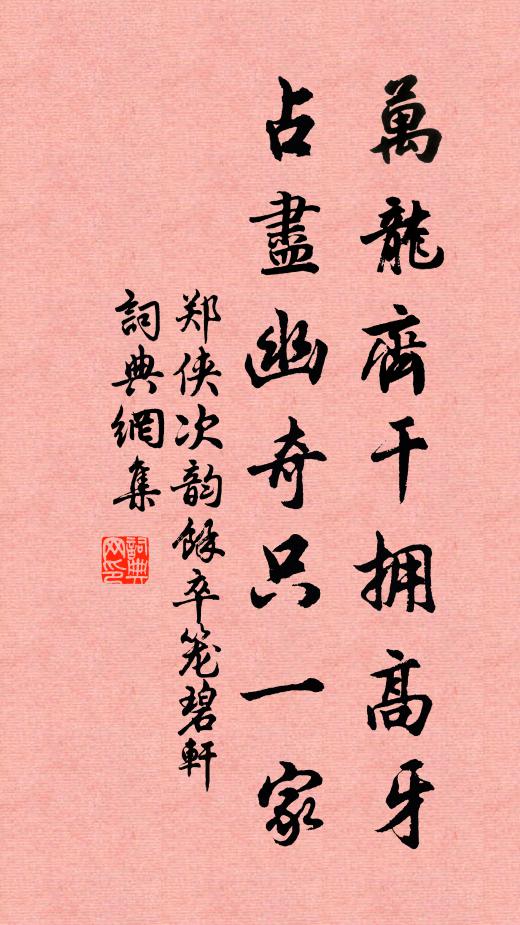 萬龍齊干拥高牙
占盡幽奇只一家
郑侠次韵餘卒笼碧軒
詞典網集
詞典网印